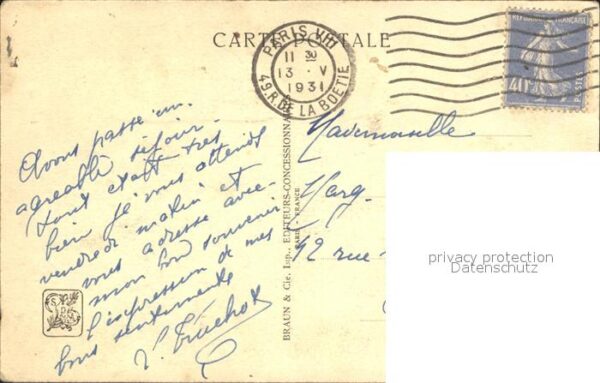 CARTE POSTALE
PARIS VIII
11 30
13 · V
1931
49 R. DE LA BOETIE
REPUBLIQUE FRANÇAISE
40c
POSTES
Avons passé un
agréable séjour.
tout était très
bien je vous attends
vendredi matin et
vous adresse avec
mon bon souvenir
l'expression de mes
bons sentiments
V. Truchot
BRAUN & Cie, Imp., EDITEURS-CONCESSIONNAI
PARIS - FRANCE
Mademoiselle
Marg
42 rue
privacy protection
Datenschutz